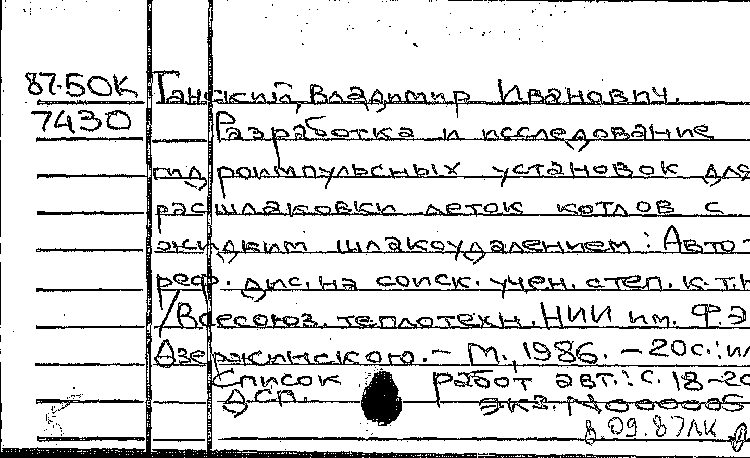 87-50К Ганский, Владимир Иванович.
7430 Разработка и исследование
гидроимпульсных установок для
расшлаковки леток котлов с
жидким шлакоудалением: Авто-
реф. дис. на соиск. учен. степ. к.т.н
/Всесоюз. теплотехн. НИИ им. Ф.Э
Дзержинского. – М., 1986. – 20 с.: ил
Список работ авт.: с. 18-20
ДСП. экз. N000005
8.09.87 ЛК